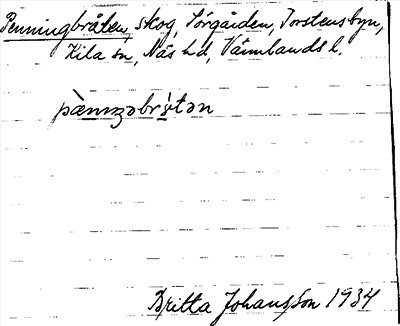 Penningbråten, skog, Sörgården, Torstensbyn,
Kila sn, Näs hd, Värmlands l.
Britta Johansson 1934